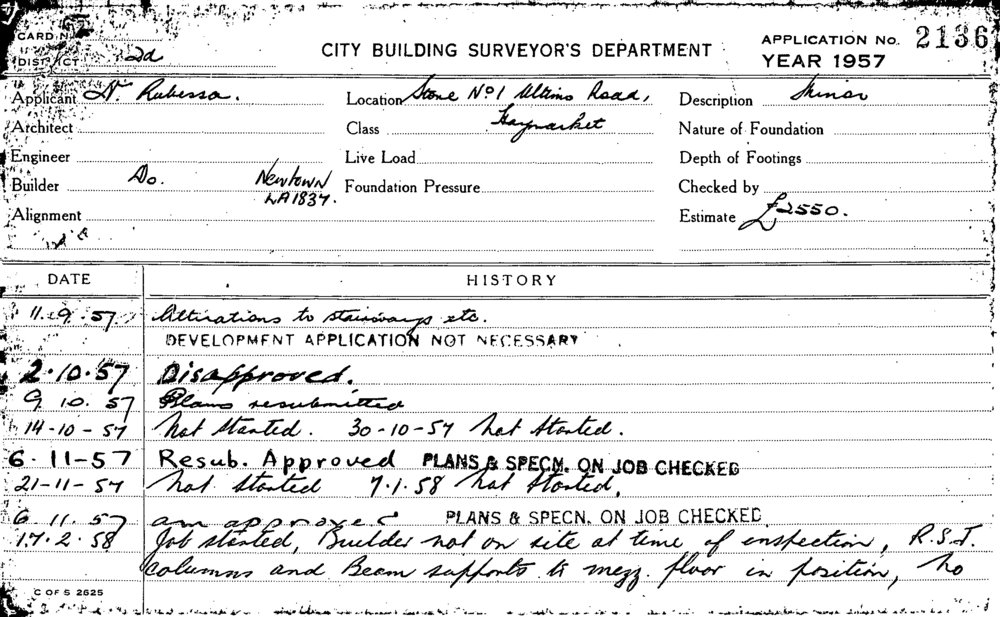 CARD N
DISTRICT 2d
CITY BUILDING SURVEYOR'S DEPARTMENT
APPLICATION No. 2136
YEAR 1957
Applicant N. Rubessa.
Location Store No 1 Ultimo Road,
Description Minor
Architect
Class Haymarket
Nature of Foundation
Engineer
Live Load
Depth of Footings
Builder Do. Newtown
LA1837.
Foundation Pressure
Checked by
Alignment
Estimate £2550.
DATE HISTORY
11.9.57. Alterations to stairways etc.
DEVELOPMENT APPLICATION NOT NECESSARY
2.10.57 Disapproved.
9 10. 57 Plans resubmitted
14-10-57 Not Started. 30-10-57 Not Started.
6.11-57 Resub. Approved PLANS & SPECN. ON JOB CHECKED
21-11-57 Not Started 7.1.58 Not Started.
6.11.57 am approved PLANS & SPECN. ON JOB CHECKED
17.2.58 Job started, Builder not on site at time of inspection, R.S.J.
columns and Beam supports to mezz. floor in position, No
C OF S 2625